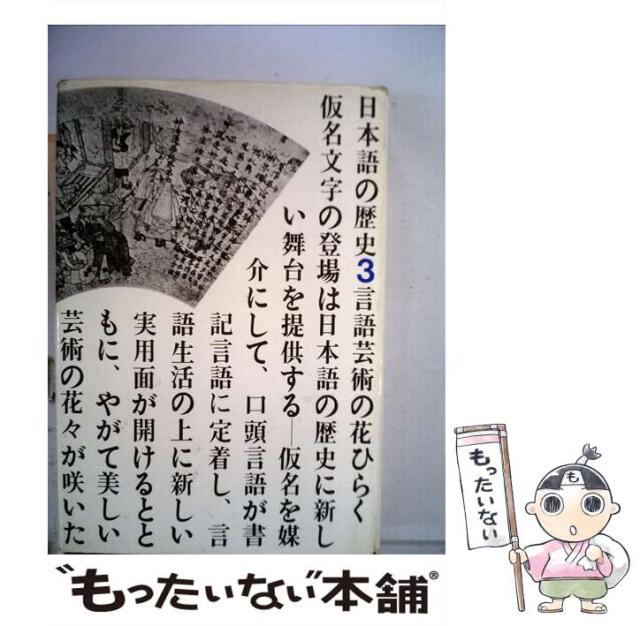 日本語の歴史3言語芸術の花ひらく
仮名文字の登場は日本語の歴史に新し
い舞台を提供する―仮名を媒
介にして、口頭言語が書
記言語に定着し、言
語生活の上に新しい
実用面が開けるとと
もに、やがて美しい
芸術の花々が咲いた
"もったいない"本舗®
もったいない
も